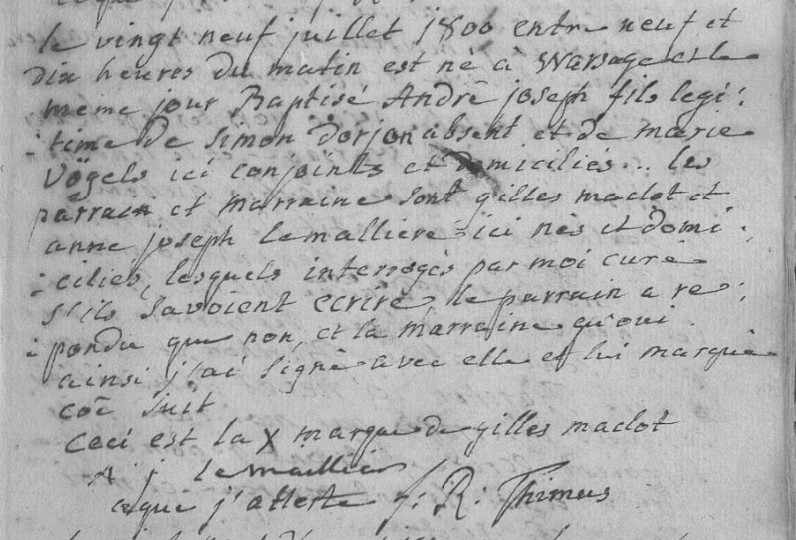 le vingt neuf juillet 1800 entre neuf et
Dix heures du matin est né à Warsage et le
meme jour Baptisé André joseph fils legi:
:time de Simon dorjon absent et de marie
Vögels ici conjoints et domiciliés... les
parrain et marraine sont gilles maclot et
anne joseph lemalliere ici nés et domi:
:ciliés, lesquels interrogés par moi curé
s'ils savoient ecrire, le parrain a re:
:pondu que non, et la marraine qu'oui.
ainsi j'ai signé avec elle et lui marqué
coē suit
Ceci est la X marque de gilles maclot
A j lemallier
ce que j'atteste f: R: Thimus